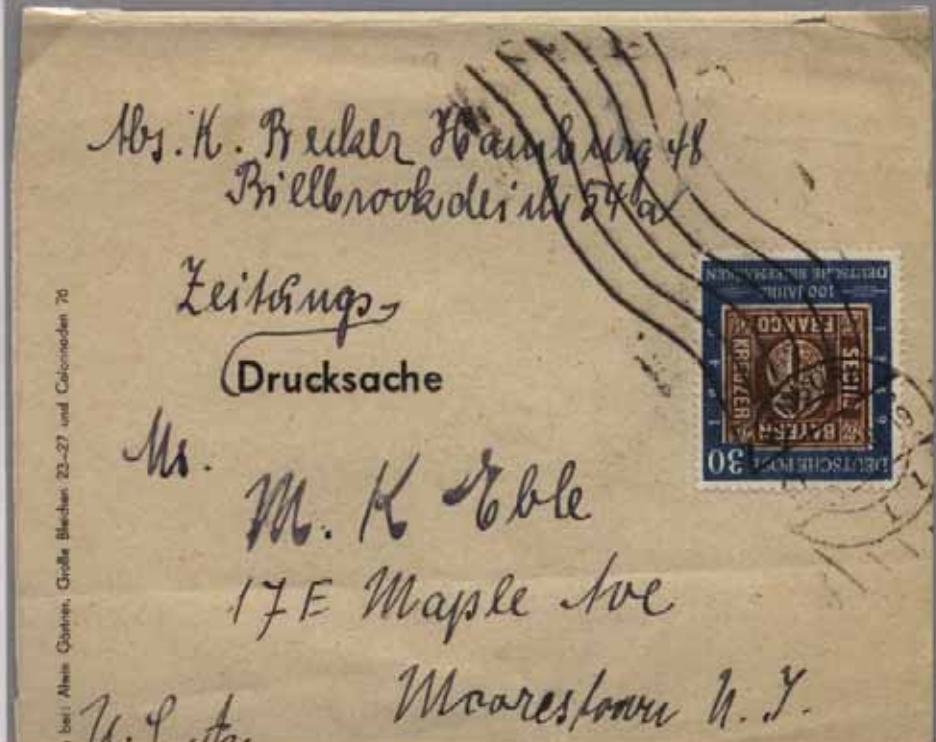 Abs. K. Becker Hamburg 48
Billbrookdeich 54a
Zeitungs-
Drucksache
Mr.
M. K Eble
17 E Maple Ave
Moorestown N. J.
U.S.A.
bei: Alwin Gärtner, Große Bleichen 23–27 und Colonnaden 76
DEUTSCHE BRIEFMARKEN
100 JAHRE
FRANCO
KREUZER
SECHS
BAYERN
1849
1949
30 DEUTSCHE POST